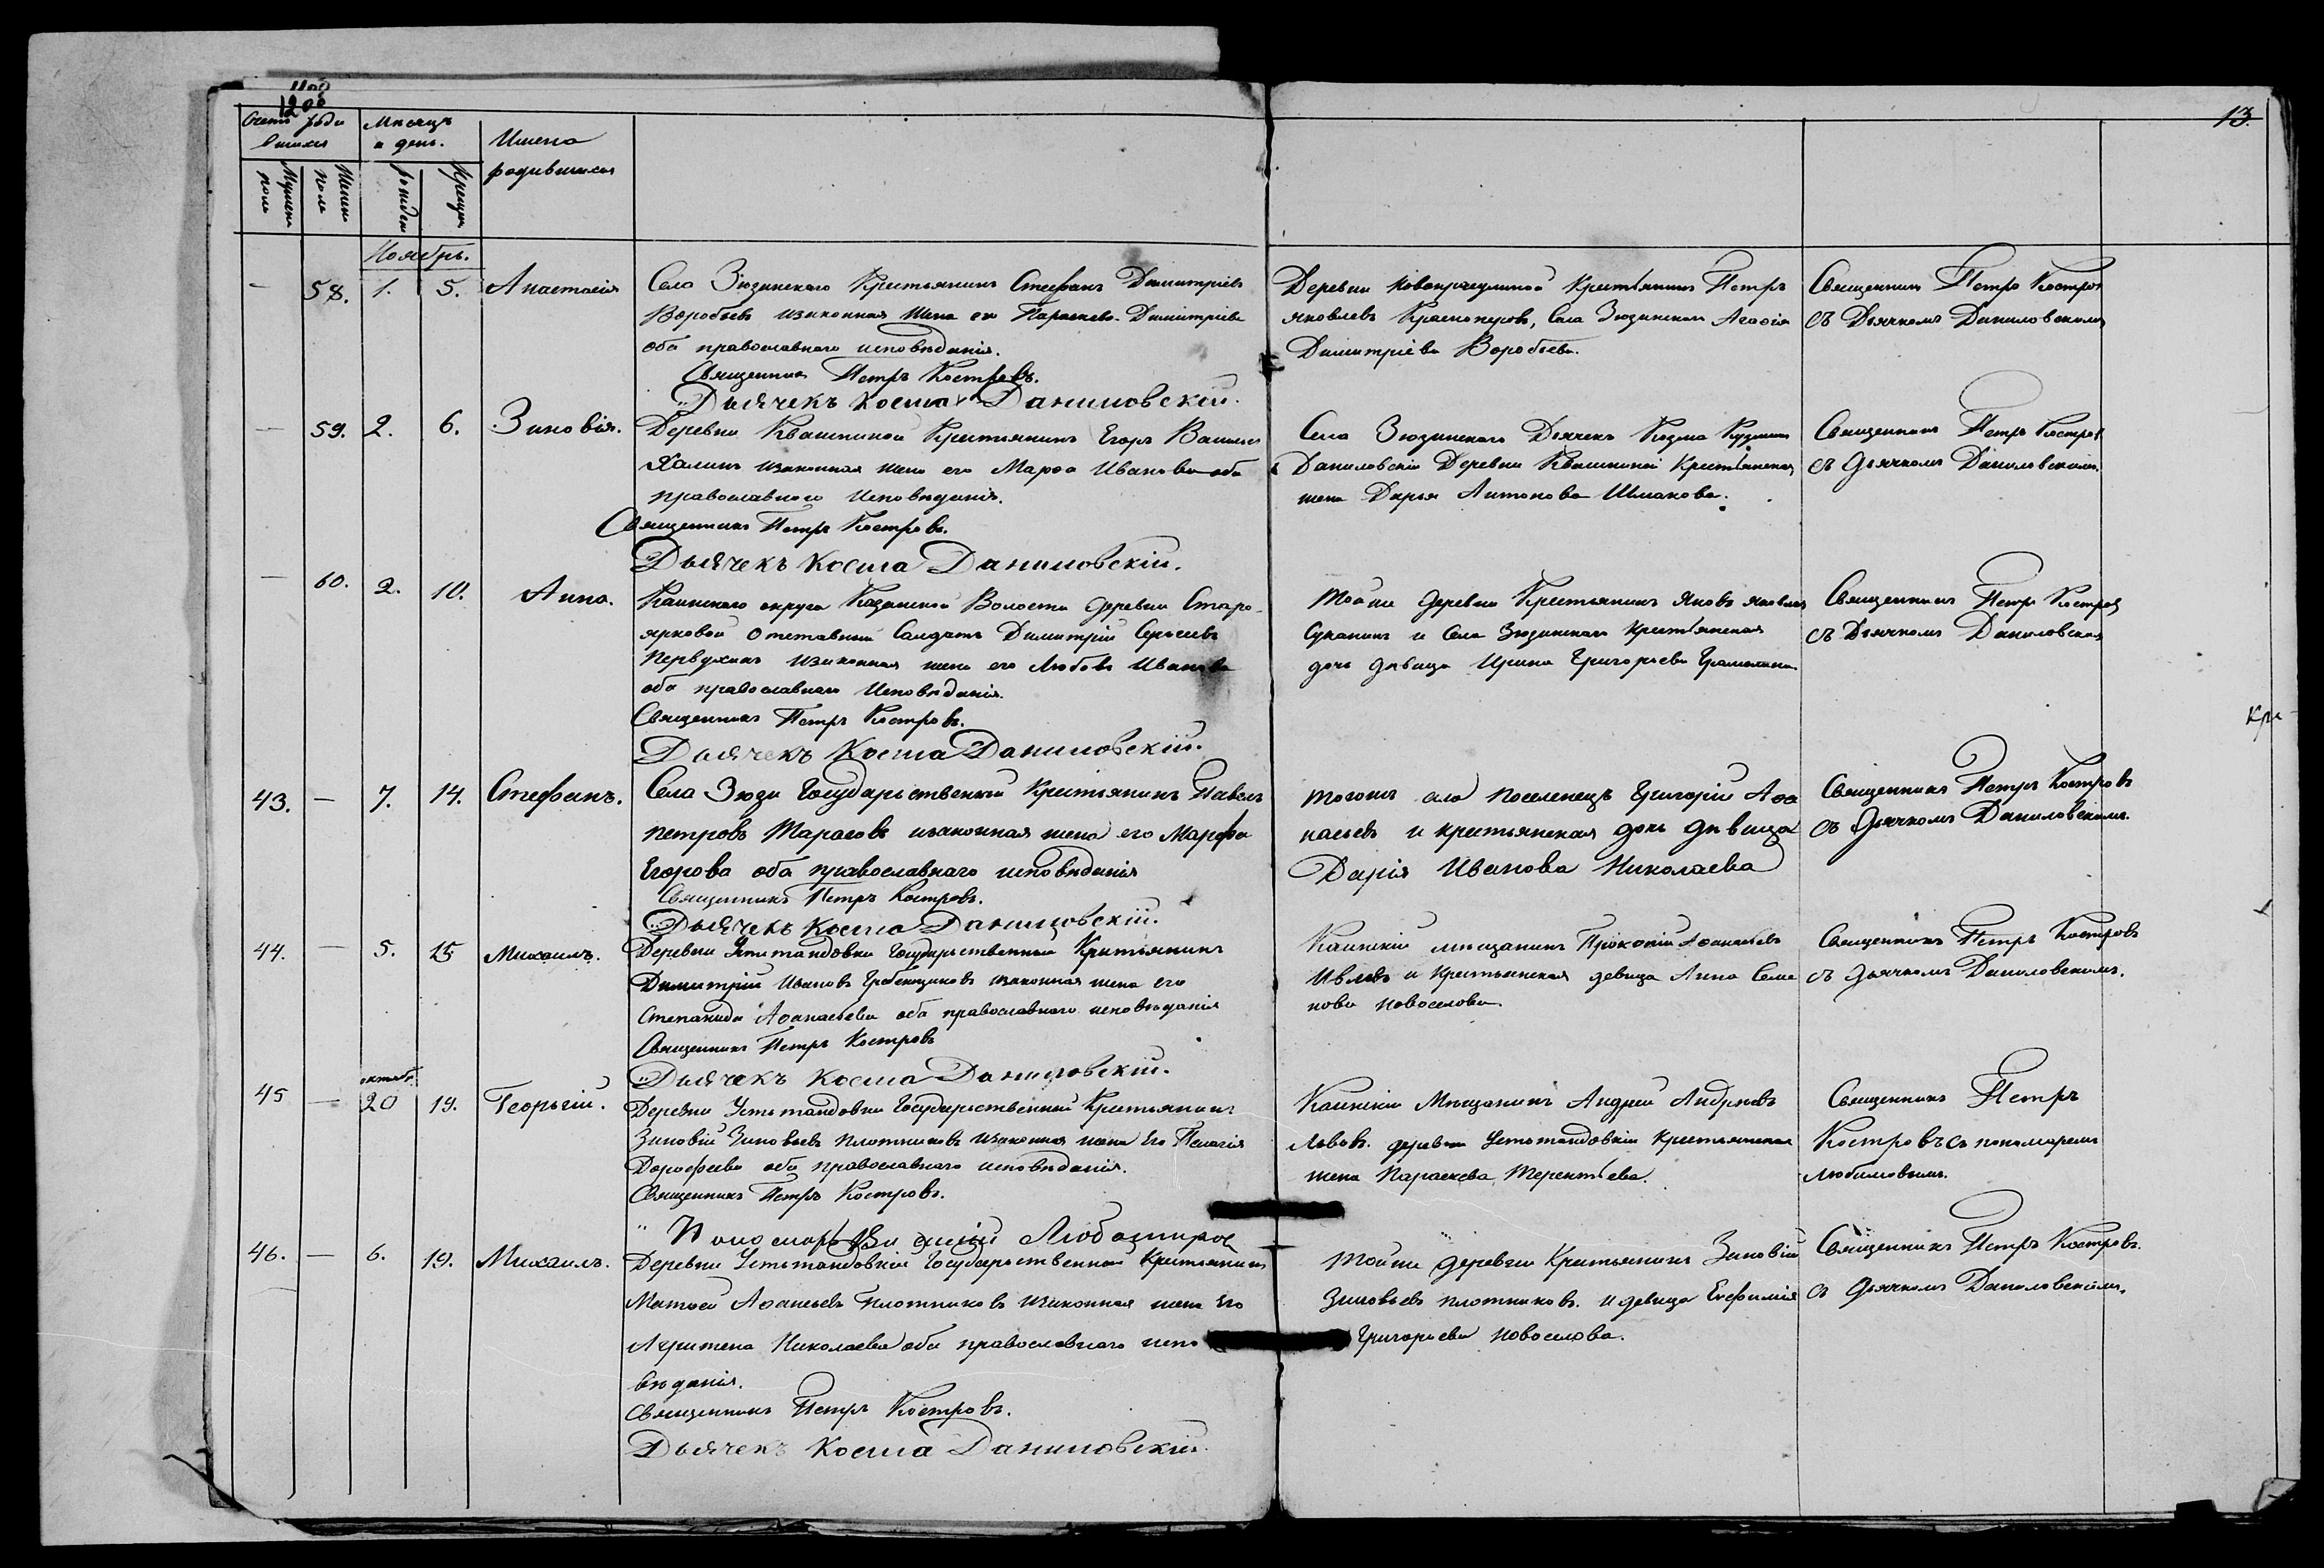 1200
13.
Счетъ роди
вшихся
Мѣсяцъ
и день.
Имена
родившихся
Мужеска
пола
Женска
пола
рожден
Крещен
Ноябрь.
— 58. 1. 5. Анастасія
Села Зюзинскаго Крестьянинъ Стефанъ Димитріевъ
Воробьевъ изаконная жена его Параскева Димитріева
оба православнаго исповѣданія.
Священникъ Петръ Костровъ.
Дьячекъ Косма Даниловскій.
Деревни Крестьянинъ Петръ
Яковлевъ Красноперовъ, Села Зюзинскаго Агафія
Димитріева Воробьева.
Священникъ Петръ Костровъ
съ Дьячкомъ Даниловскимъ
— 59. 2. 6. Зиновія.
Деревни Квашниной Крестьянинъ Егоръ Васильев
Халинъ изаконная жена его Марѳа Иванова оба
православнаго Исповѣданія.
Священникъ Петръ Костровъ.
Дьячекъ Косма Даниловскій.
Села Зюзинскаго Дьячекъ Козма Кузмин
Даниловскій Деревни Квашниной Крестьянская
жена Дарья Антонова Шмакова.
Священникъ Петръ Костров
съ дьячкомъ Даниловскимъ.
— 60. 2. 10. Анна.
Каинскаго округа Казанской Волости деревни Старо-
ярковой Отставный Салдатъ Димитрій Сергеевъ
Первухинъ изаконная жена его Любовь Иванова
оба православнаго Исповѣданія.
Священникъ Петръ Костровъ.
Дьячекъ Косма Даниловскій.
Тойже деревни Крестьянинъ Яковъ Яковлев
и Села Зюзинскаго Крестьянская
дочь дѣвица Ирина Григорьева
Священникъ Петръ Костров
съ Дьячкомъ Даниловским
Кре-
43. — 7. 14. Стефанъ.
Села Зюзи Государственный Крестьянинъ Павелъ
Петровъ Тарасовъ изаконная жена его Марфа
Егорова оба православнаго исповѣданія
Священникъ Петръ Костровъ.
Дьячекъ Косма Даниловскій.
тогожъ села Поселенецъ Григорій Аѳа
насьевъ и крестьянская дочь дѣвица
Дарія Иванова Николаева
Священникъ Петръ Костровъ
съ Дьячкомъ Даниловскимъ.
44. — 5. 15 Михаилъ.
Деревни Устьтандовки Государственный Крестьянинъ
Димитрій Ивановъ Гребенщиковъ изаконная жена его
Степанида Аѳанасьева оба православнаго исповѣданія
Священникъ Петръ Костровъ
Дьячекъ Косма Даниловскій.
Каинскій мѣщанинъ Прокопій Аѳанасьевъ
Ивлевъ и Крестьянская девица Анна Семе
нова Новоселова
Священникъ Петръ Костровъ
съ дьячкомъ Даниловскимъ.
октябр
45 — 20 19. Георгій.
Деревни Устьтандовки Государственный Крестьянинъ
Зиновій Зиновьевъ Плотниковъ изаконная жена Его Пелагія
Дорофеева оба православнаго исповѣданія.
Священникъ Петръ Костровъ.
Пономарь Любомировъ
Каинскій Мѣщанинъ Андрей Андреевъ
Львовъ. деревни Устьтандовкіи Крестьянская
жена Параскева Терентьева.
Священникъ Петръ
Костровъ съ пономаремъ
46. — 6. 19. Михаилъ.
Деревни Устьтандовкіи Государственный Крестьянинъ
Матѳей Аѳанасьевъ Плотниковъ изаконная жена Его
Агрипена Николаева оба православнаго испо
вѣданія.
Священникъ Петръ Костровъ.
Дьячекъ Косма Даниловскій.
Тойже деревни Крестьянинъ Зиновій
Зиновьевъ Плотниковъ. и девица Евфимія
Григорьева Новоселова.
Священникъ Петръ Костровъ.
съ Дьячкомъ Даниловскимъ.